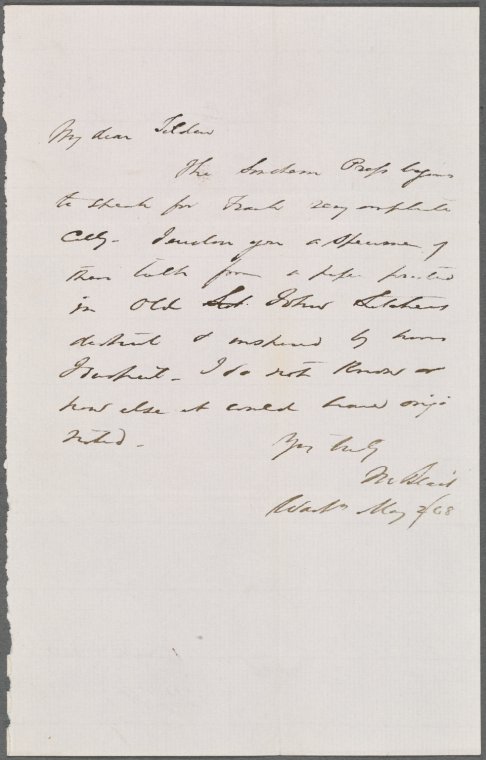 My dear Tilden
The Southern Press begins
to speak for Frank very emphati
cally. I enclose you a specimen of
their talk from a paper printed
in Old John Letchers
district & inspired by him
I suspect. I do not know
how else it could have origi
nated.
Yrs truly
M Blair
Washn May 2/68